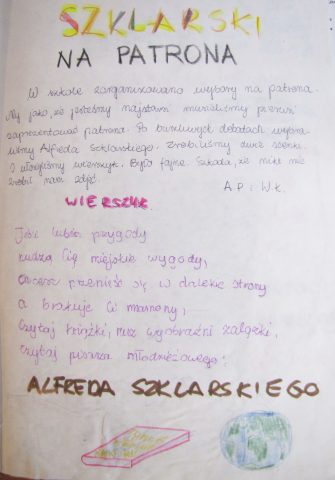 SZKLARSKI
NA PATRONA
W szkole zorganizowano wybory na patrona.
My jako, że jesteśmy najstarsi musieliśmy pierwsi
zaprezentować patrona. Po burzliwych debatach wybra-
liśmy Alfreda Szklarskiego. Zrobiliśmy dwie scenki
i ułożyliśmy wierszyk. Było fajnie. Szkoda, że nikt nie
zrobił nam zdjęć.
A.P i W.K.
WIERSZYK
Jeśli lubisz przygody
nudzą Cię miejskie wygody,
chcesz przenieść się w dalekie strony
a brakuje Ci mamony,
Czytaj książki, rusz wyobraźni
Czytaj pisarza młodzieżowego:
ALFREDA SZKLARSKIEGO